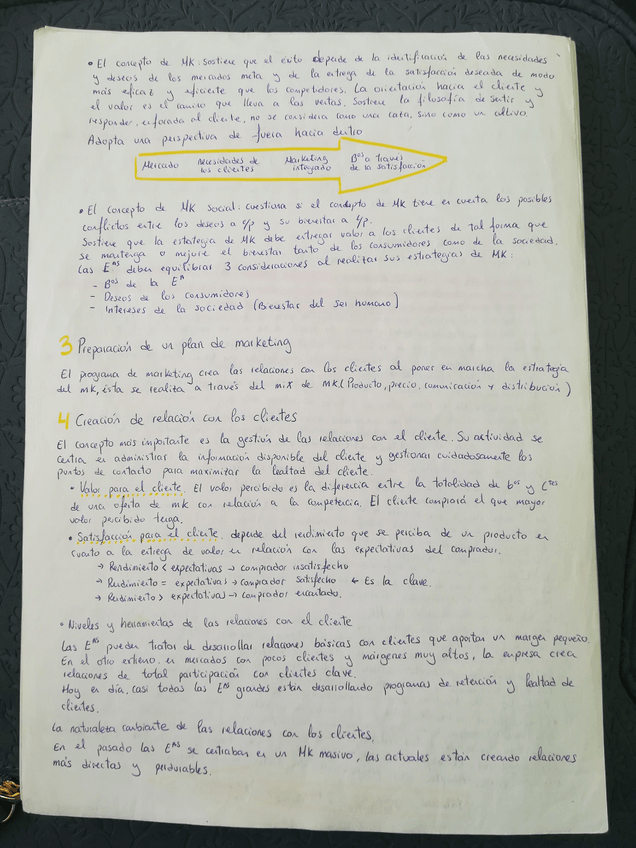 • El concepto de MK: Sostiene que el éxito depende de la identificación de las necesidades
y deseos de los mercados meta y de la entrega de la satisfacción deseada de modo
más eficaz y eficiente que los competidores. La orientación hacia el cliente y
el valor es el camino que lleva a las ventas. Sostiene la filosofía de sentir y
responder, enfocada al cliente, no se considera como una caza, sino como un cultivo.
Adopta una perspectiva de fuera hacia dentro
Mercado Necesidades de los clientes Marketing integrado Bºs a través de la satisfacción
• El concepto de MK Social: cuestiona si el concepto de MK tiene en cuenta los posibles
conflictos entre los deseos a c/p y su bienestar a l/p.
Sostiene que la estrategia de MK debe entregar valor a los clientes de tal forma que
se mantenga o mejore el bienestar tanto de los consumidores como de la sociedad.
Las Eᴬˢ deben equilibrar 3 consideraciones al realizar sus estrategias de MK:
- Bºs de la Eᴬ
- Deseos de los consumidores
- Intereses de la sociedad (Bienestar del ser humano)
3 Preparación de un plan de marketing
El programa de marketing crea las relaciones con los clientes al poner en marcha la estrategia
del mk, ésta se realiza a través del mix de mk (Producto, precio, comunicación y distribución)
4 Creación de relación con los clientes
El concepto más importante es la gestión de las relaciones con el cliente. Su actividad se
centra en administrar la información disponible del cliente y gestionar cuidadosamente los
puntos de contacto para maximizar la lealtad del cliente.
• Valor para el cliente. El valor percibido es la diferencia entre la totalidad de Bºs y Cᵗᵉˢ
de una oferta de mk con relación a la competencia. El cliente comprará el que mayor
valor percibido tenga.
• Satisfacción para el cliente. depende del rendimiento que se perciba de un producto en
cuanto a la entrega de valor en relación con las expectativas del comprador.
→ Rendimiento < expectativas → comprador insatisfecho
→ Rendimiento = expectativas → comprador satisfecho ← Es la clave.
→ Rendimiento > expectativas → comprador encantado.
• Niveles y herramientas de las relaciones con el cliente
Las Eᴬˢ pueden tratar de desarrollar relaciones básicas con clientes que aportan un margen pequeño.
En el otro extremo, en mercados con pocos clientes y márgenes muy altos, la empresa crea
relaciones de total participación con clientes clave.
Hoy en día, casi todas las Eᴬˢ grandes están desarrollando programas de retención y lealtad de
clientes.
La naturaleza cambiante de las relaciones con los clientes.
En el pasado las Eᴬˢ se centraban en un MK masivo, las actuales están creando relaciones
más directas y perdurables.